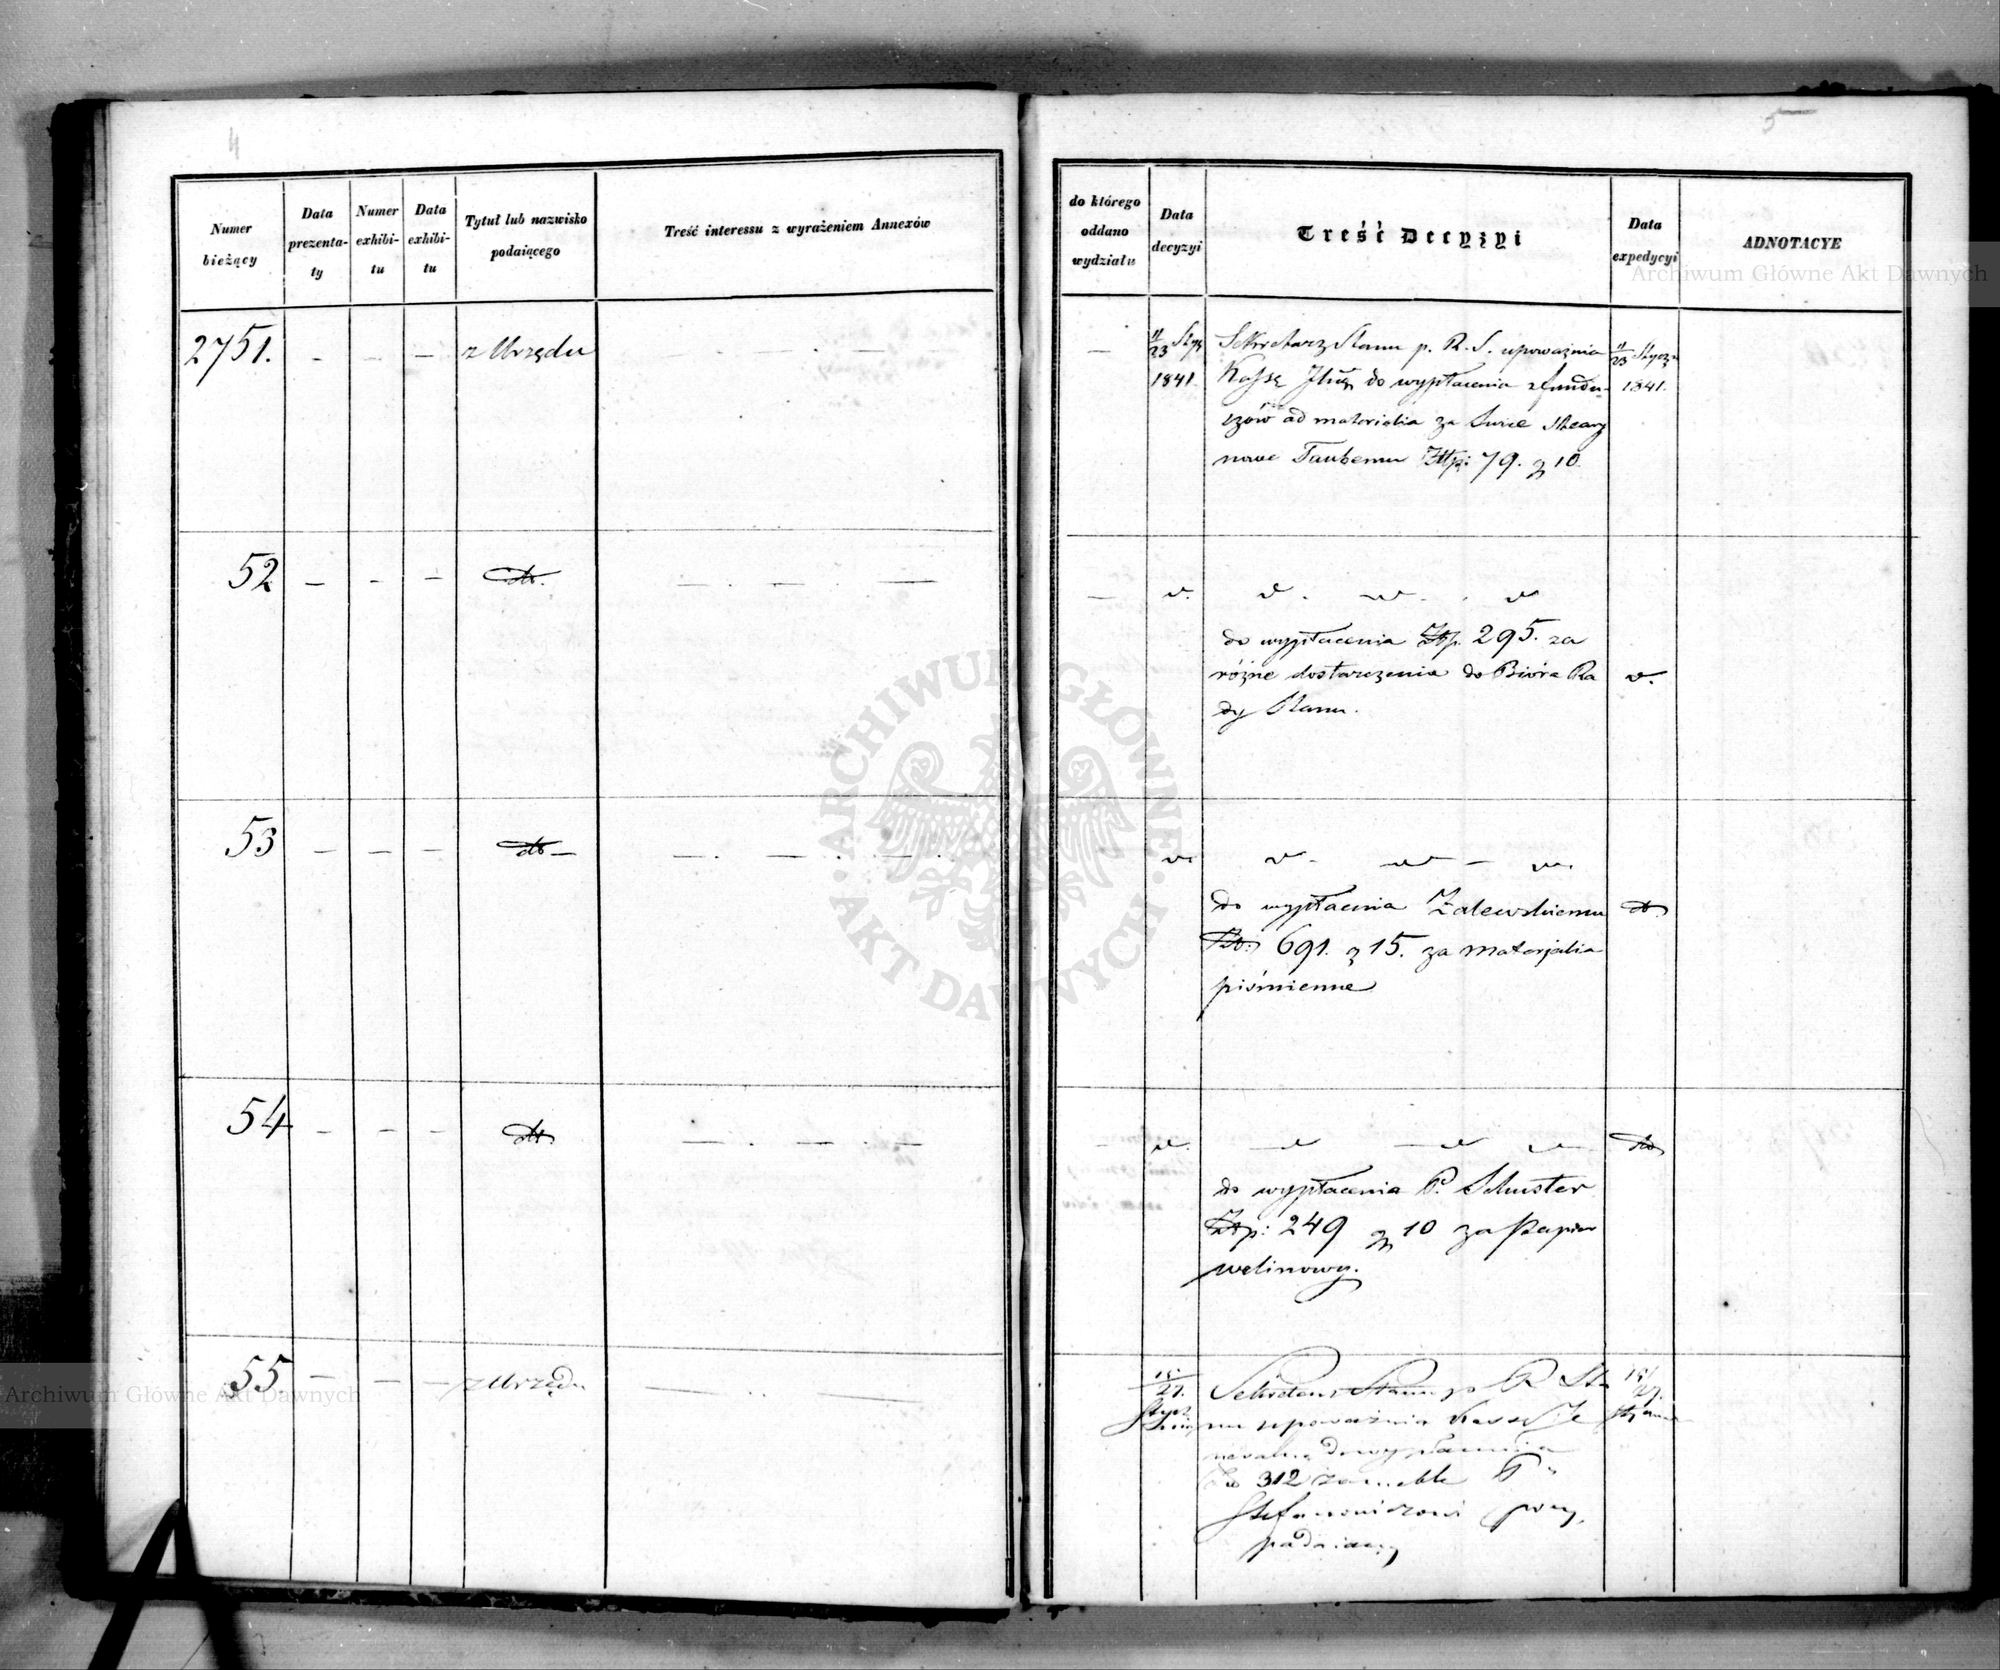 4
Numer bieżący
Data prezenta-ty
Numer exhibi-tu
Data exhibi-tu
Tytuł lub nazwisko podaiącego
Treść interessu z wyrażeniem Annexów
2751. — — — z Urzędu — . — . —
52 — — — dto. — . — . —
53 — — — dto — — . — . — .
54 — — — dto. — . — . —
55 — — — z Urzędu — . . —
5
do którego oddano wydziału
Data decyzyi
Treść Decyzyi
Data expedycyi
ADNOTACYE
— 11/23 Stycz 1841.
Sekretarz Stanu p. R. S. upoważnia
Kassę Jlną do wypłacenia z fundu-
szów ad materialia za Swiece Steary
nowe Taubemu Złtp: 79. g 10.
11/23 Stycz
1841.
do wypłacenia Złtp. 295. za
różne dostarczenia do Biura Ra
dy Stanu.
do wypłacenia Zalewskiemu
691. g 15. za materjalia
piśmienne
dto.
do wypłacenia P. Schuster
Złtp: 249 gr 10 za Papier
welinowy.
dto
15/27.
Sekretarz Stanu p R Sta
nu upoważnia Kassę Je
neralną do wypłacenia
312 za meble P
Stefanowiczowi
15/27.
Archiwum Główne Akt Dawnych
ARCHIWUM GŁÓWNE · AKT DAWNYCH ·
Archiwum Główne Akt Dawnych